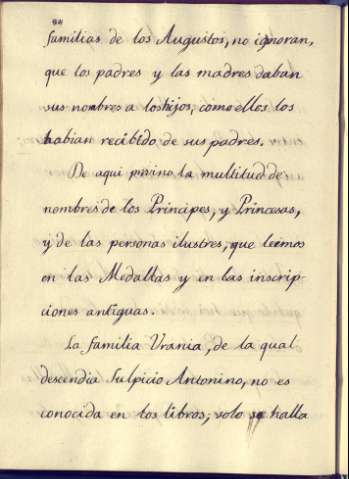 64
familias de los Augustos, no ignoran,
que los padres y las madres daban
sus nombres a los hijos, como elles los
habian recibido de sus padres.
De aqui provino la multitud de
nombres de los Principes, y Princesas,
y de las personas ilustres, que leemos
en las Medallas y en las inscrip-
ciones antiguas.
La familia Vrania, de la qual
descendia Sulpicio Antonino, no es
conocida en los libros; solo se halla